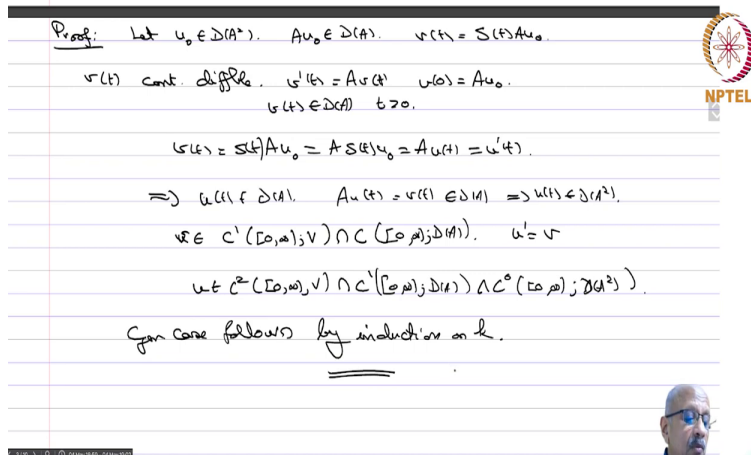 Proof: Let u₀ ∈ D(A²). Au₀ ∈ D(A). v(t) = S(t)Au₀.
v(t) cont. diffble. v'(t) = Av(t) v(0) = Au₀.
v(t) ∈ D(A) t ≥ 0.
NPTEL
v(t) = S(t)Au₀ = A S(t)u₀ = Au(t) = u'(t).
⇒ u(t) ∈ D(A). Au(t) = v(t) ∈ D(A) ⇒ u(t) ∈ D(A²).
v ∈ C¹([0,∞); V) ∩ C([0,∞); D(A)). u' = v
u ∈ C²([0,∞); V) ∩ C¹([0,∞); D(A)) ∩ C⁰([0,∞); D(A²)).
Gen case follows by induction on k.